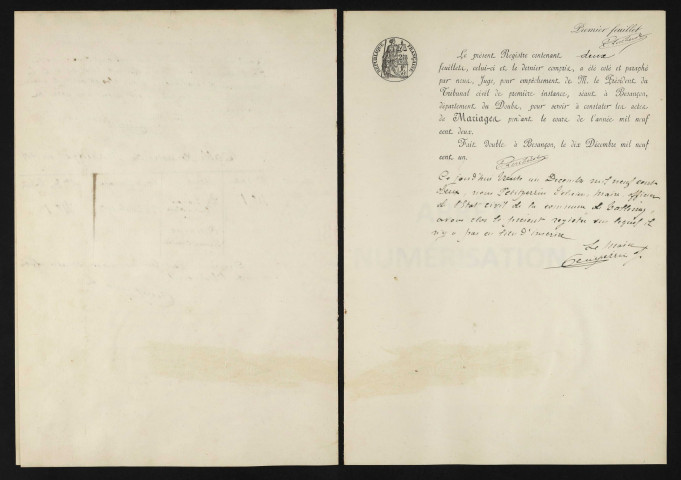 Premier feuillet
RÉPUBLIQUE FRANÇAISE
Le présent Registre contenant deux
feuillets, celui-ci et le dernier compris, a été coté et paraphé
par nous, Juge, pour empêchement de M. le Président du
Tribunal civil de première instance, séant à Besançon,
département du Doubs, pour servir à constater les actes
de Mariages pendant le cours de l'année mil neuf
cent deux.
Fait double à Besançon, le dix Décembre mil neuf
cent un.
Ce jourd'hui trente un Décembre mil neuf cent
deux, nous maire, officier
de l'état civil de la commune de
avons clos le présent registre sur lequel il
n'y a pas eu lieu d'inscrire
Le maire
NUMÉRISATION